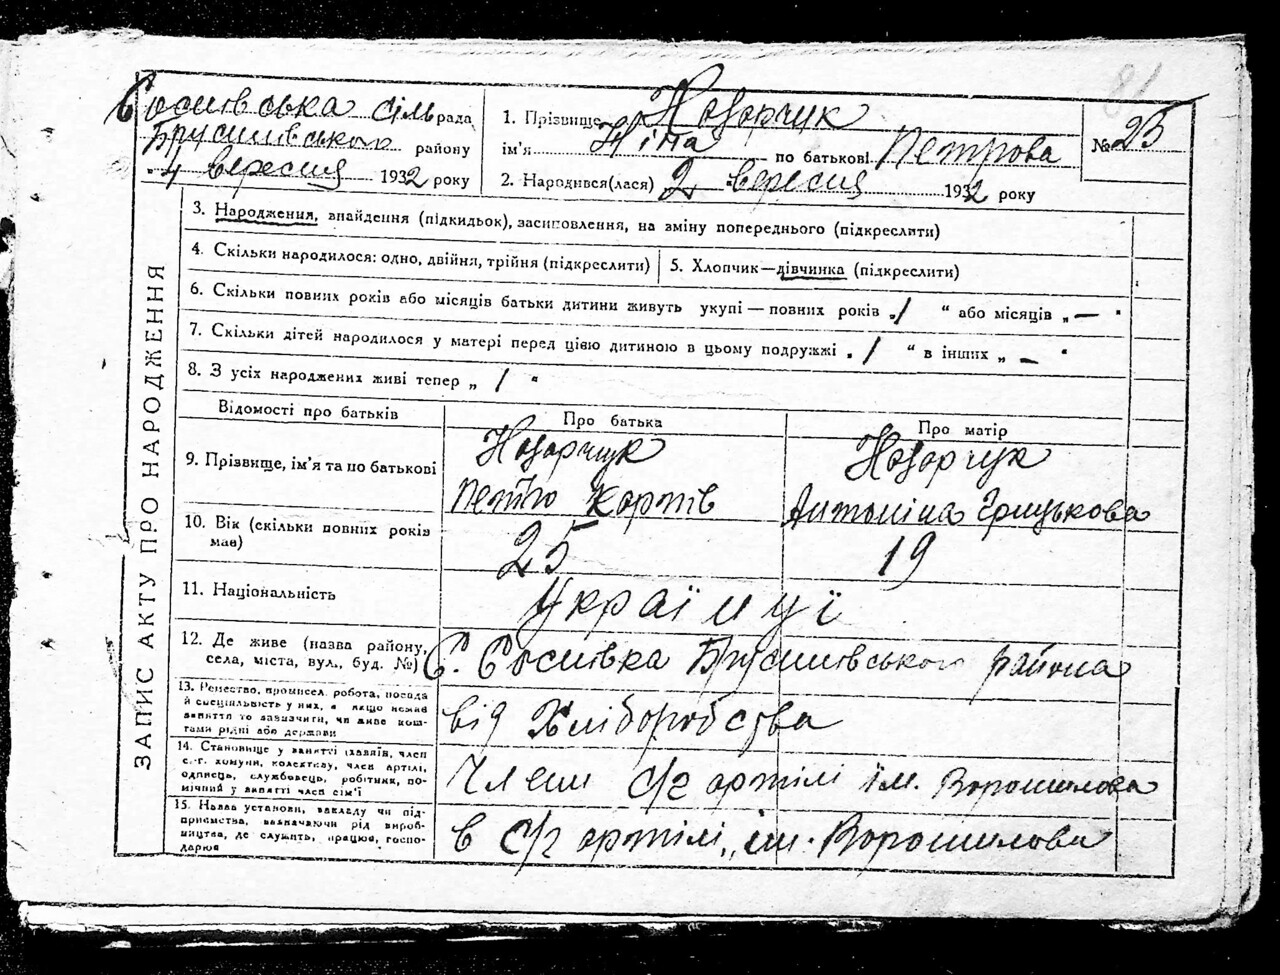 81
Соснівська сільрада
Брусилівського району
"4" вересня 1932 року
1. Прізвище Назарчук
ім'я Ніна по батькові Петрова
2. Народився(лася) 2 "вересня 1932 року
№ 23
ЗАПИС АКТУ ПРО НАРОДЖЕННЯ
3. Народження, знайдення (підкидьок), засиновлення, на зміну попереднього (підкреслити)
4. Скільки народилося: одно, двійня, трійня (підкреслити)
5. Хлопчик—дівчинка (підкреслити)
6. Скільки повних років або місяців батьки дитини живуть укупі — повних років „1 “ або місяців „ — “
7. Скільки дітей народилося у матері перед цією дитиною в цьому подружжі „ 1 “ в інших „ — “
8. З усіх народжених живі тепер „ 1 “
Відомості про батьків
Про батька
Про матір
9. Прізвище, ім'я та по батькові
Назарчук
Петро Карпів
Назарчук
Антоніна Грицькова
10. Вік (скільки повних років
має)
25
19
11. Національність
Українці
12. Де живе (назва району,
села, міста, вул., буд. №)
С. Соснівка Брусилівського района
13. Ремество, промисел, робота, посада
й спеціяльність у них, а якщо немає
заняття то зазначити, чи живе кош-
тами рідні або держави
від Хліборобства
14. Становище у занятті (хазяїн, член
с.-г. комуни, колективу, член артілі,
одинець, службовець, робітник, по-
мічний у занятті член сім'ї
Член с/г артілі ім. Ворошилова
15. Назва установи, закладу чи під-
приємства, зазначаючи рід вироб-
ництва, де служить, працює, госпо-
дарює
в с/г артілі „ім. Ворошилова